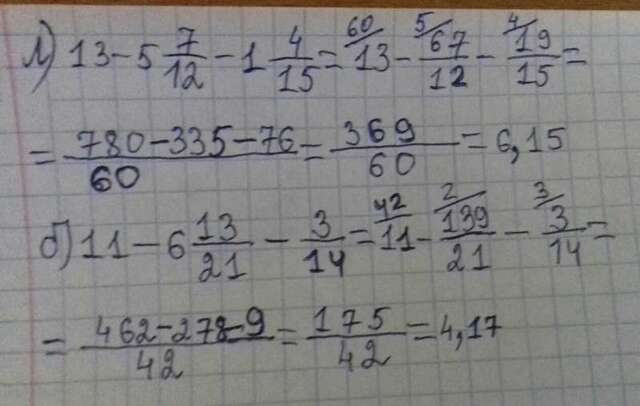 л) 13 - 5 7/12 - 1 4/15 = 60/ 13 - 5/ 67/12 - 4/ 19/15 =
= (780 - 335 - 76)/60 = 369/60 = 6,15
б) 11 - 6 13/21 - 3/14 = 42/ 11 - 2/ 139/21 - 3/ 3/14 =
= (462 - 278 - 9)/42 = 175/42 = 4,17